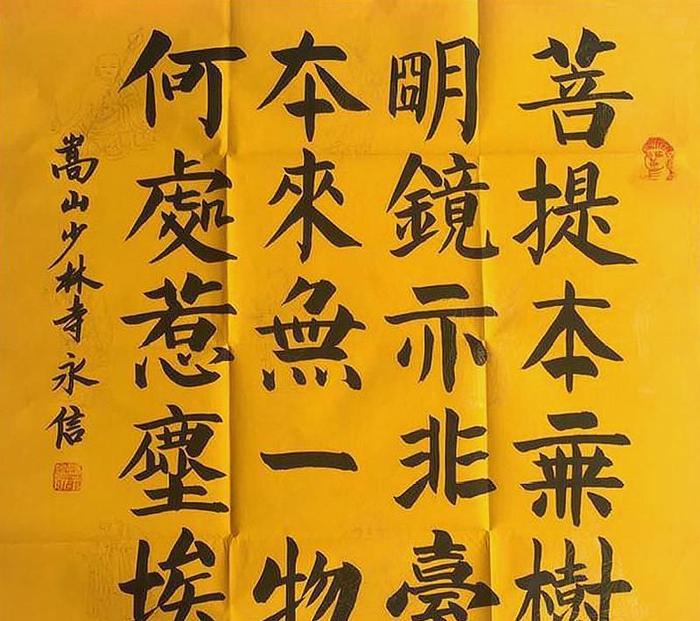 菩提本無樹
明鏡亦非臺
本來無一物
何處惹塵埃
嵩山少林寺永信